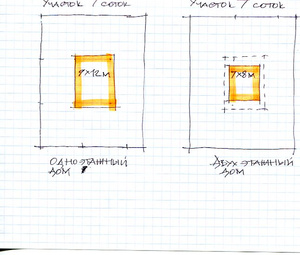 УЧАСТОК 7 СОТОК
УЧАСТОК 7 СОТОК
9×12М
7×8М
ОДНОЭТАЖНЫЙ
ДОМ
ДВУХЭТАЖНЫЙ
ДОМ